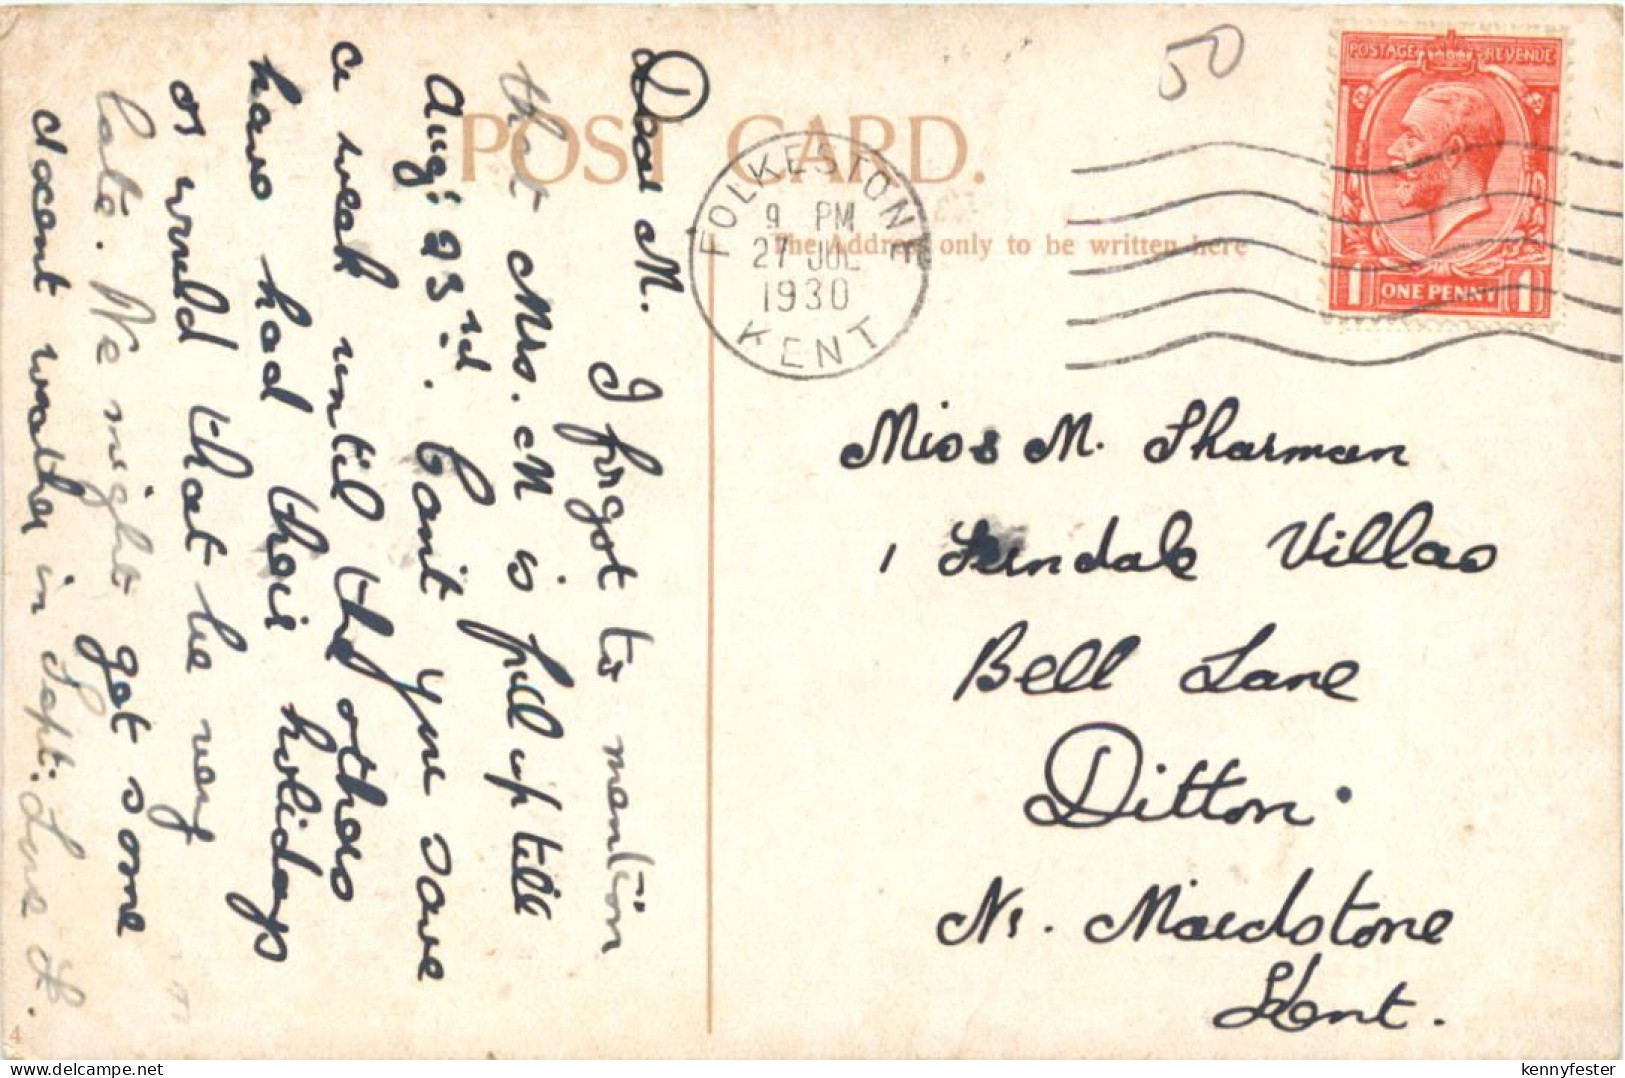 POST CARD.
The Address only to be written here
50
POSTAGE REVENUE
1 ONE PENNY 1
FOLKESTONE
9 PM
27 JUL
1930
KENT
Dear M.
I forgot to mention
that Mrs. M is full up till
Aug: 23rd. Can't you save
a week until the others
have had their holidays
or would that be very
late. We might get some
decent weather in Sept: Love
Miss M. Sharman
1 Ferndale Villas
Bell Lane
Ditton.
Nr. Maidstone
Kent.
4
kennyfester